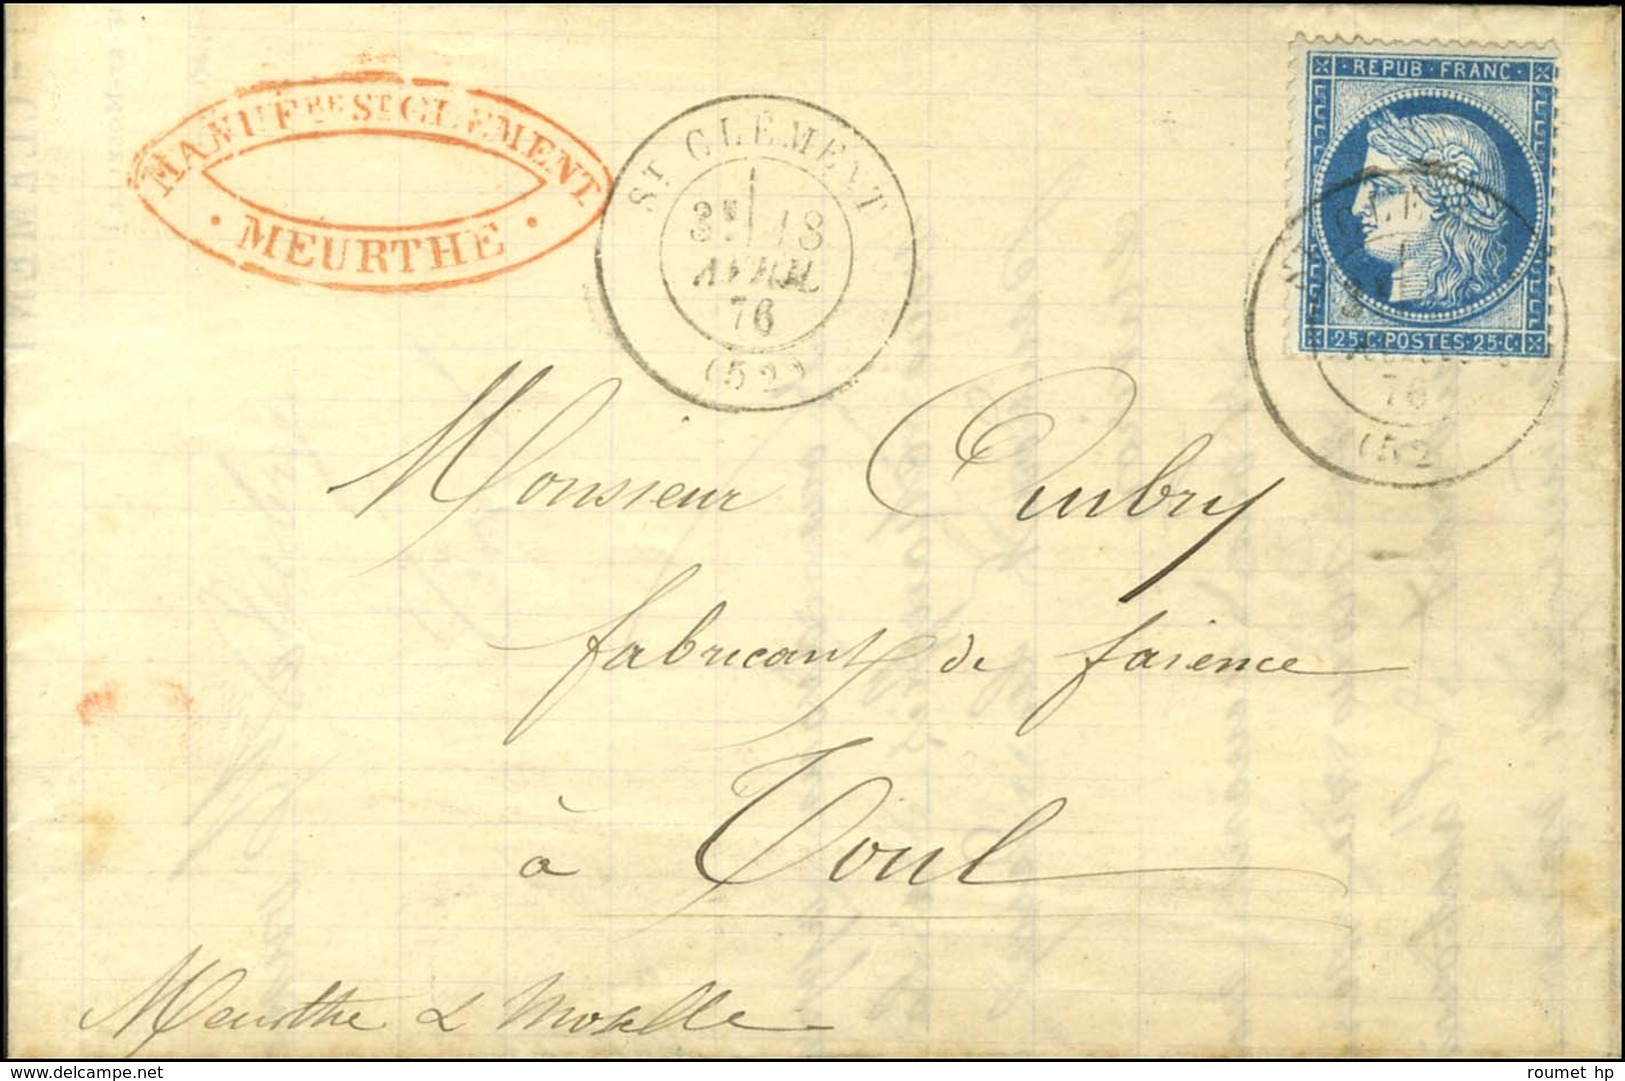 MANUFRE ST CLEMENT
· MEURTHE ·
ST CLÉMENT
3E 18
AVRIL
76
(52)
· REPUB · FRANC ·
25 · C · POSTES · 25 · C ·
76
(52
Monsieur Aubry
fabricant de faience
à Toul
Meurthe & Moselle
roumet hp